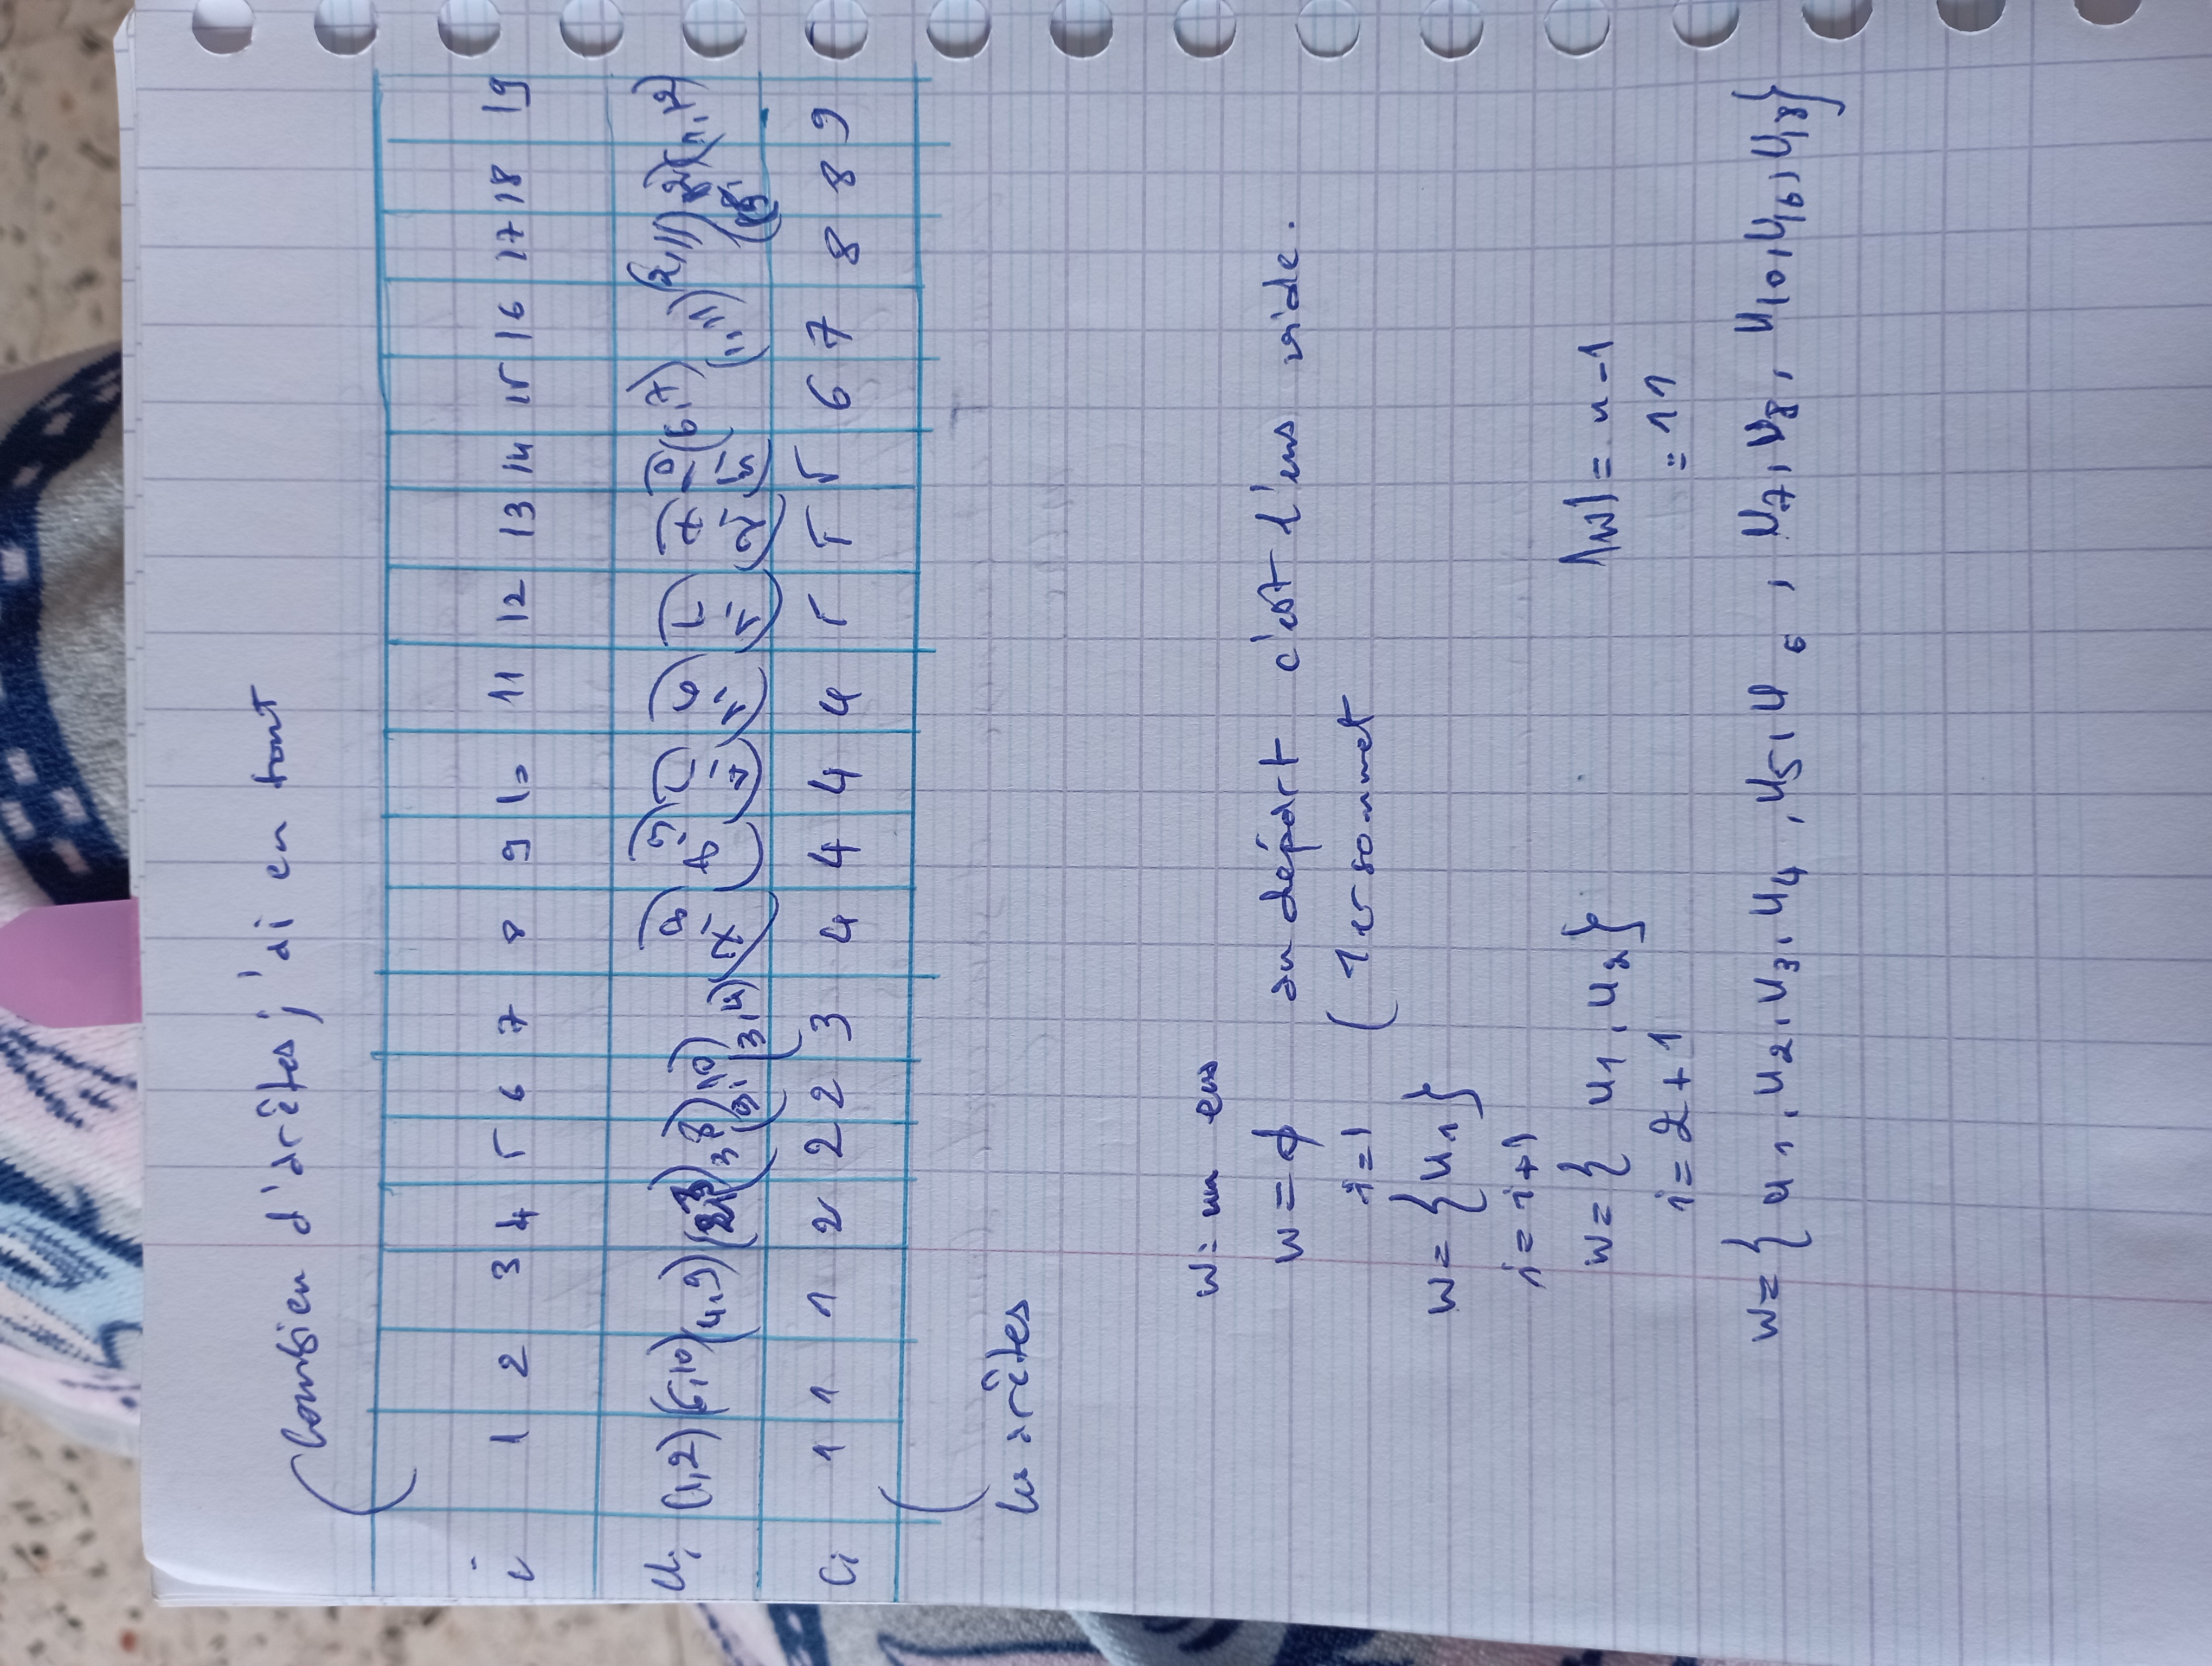 Combien d'arêtes j'ai en tout
i 1 2 3 4 5 6 7 8 9 10 11 12 13 14 15 16 17 18 19
Ui (1,2) (6,10) (4,9) (2,3) (3,8) (9,10) (3,4) (7,8) (8,9) (4,5) (1,6) (1,5) (2,7) (5,10) (6,7) (1,11) (2,11) (1,12)
Ci 1 1 1 2 2 2 3 4 4 4 4 5 5 5 6 7 8 8 9
les arêtes
W: un ens
W = ϕ au départ c'est l'ens vide.
i=1 ( 1er sommet
W = {u1}
i = i+1
W = { u1, u2} |W| = n-1
i = 2 + 1 = 11
W = { u1, u2, u3, u4, u5, u6, u7, u8, u10, u16, u18}